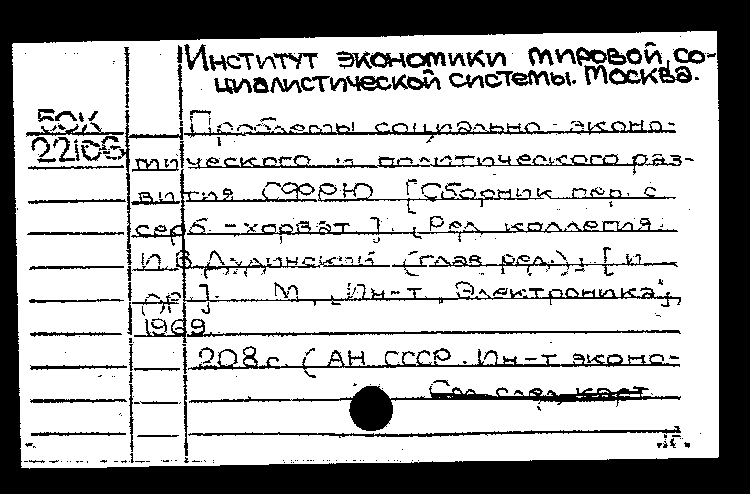 Институт экономики мировой со-
циалистической системы. Москва.
50К
22106
Проблемы социально-эконо-
мического и политического раз-
вития СФРЮ [Сборник пер. с
серб.-хорват]. [Ред. коллегия:
И.В. Дудинский (глав. ред.), [и
др.]. М., [Ин-т "Электроника",
1969.
208 с. (АН СССР. Ин-т эконо-
См. след. карт